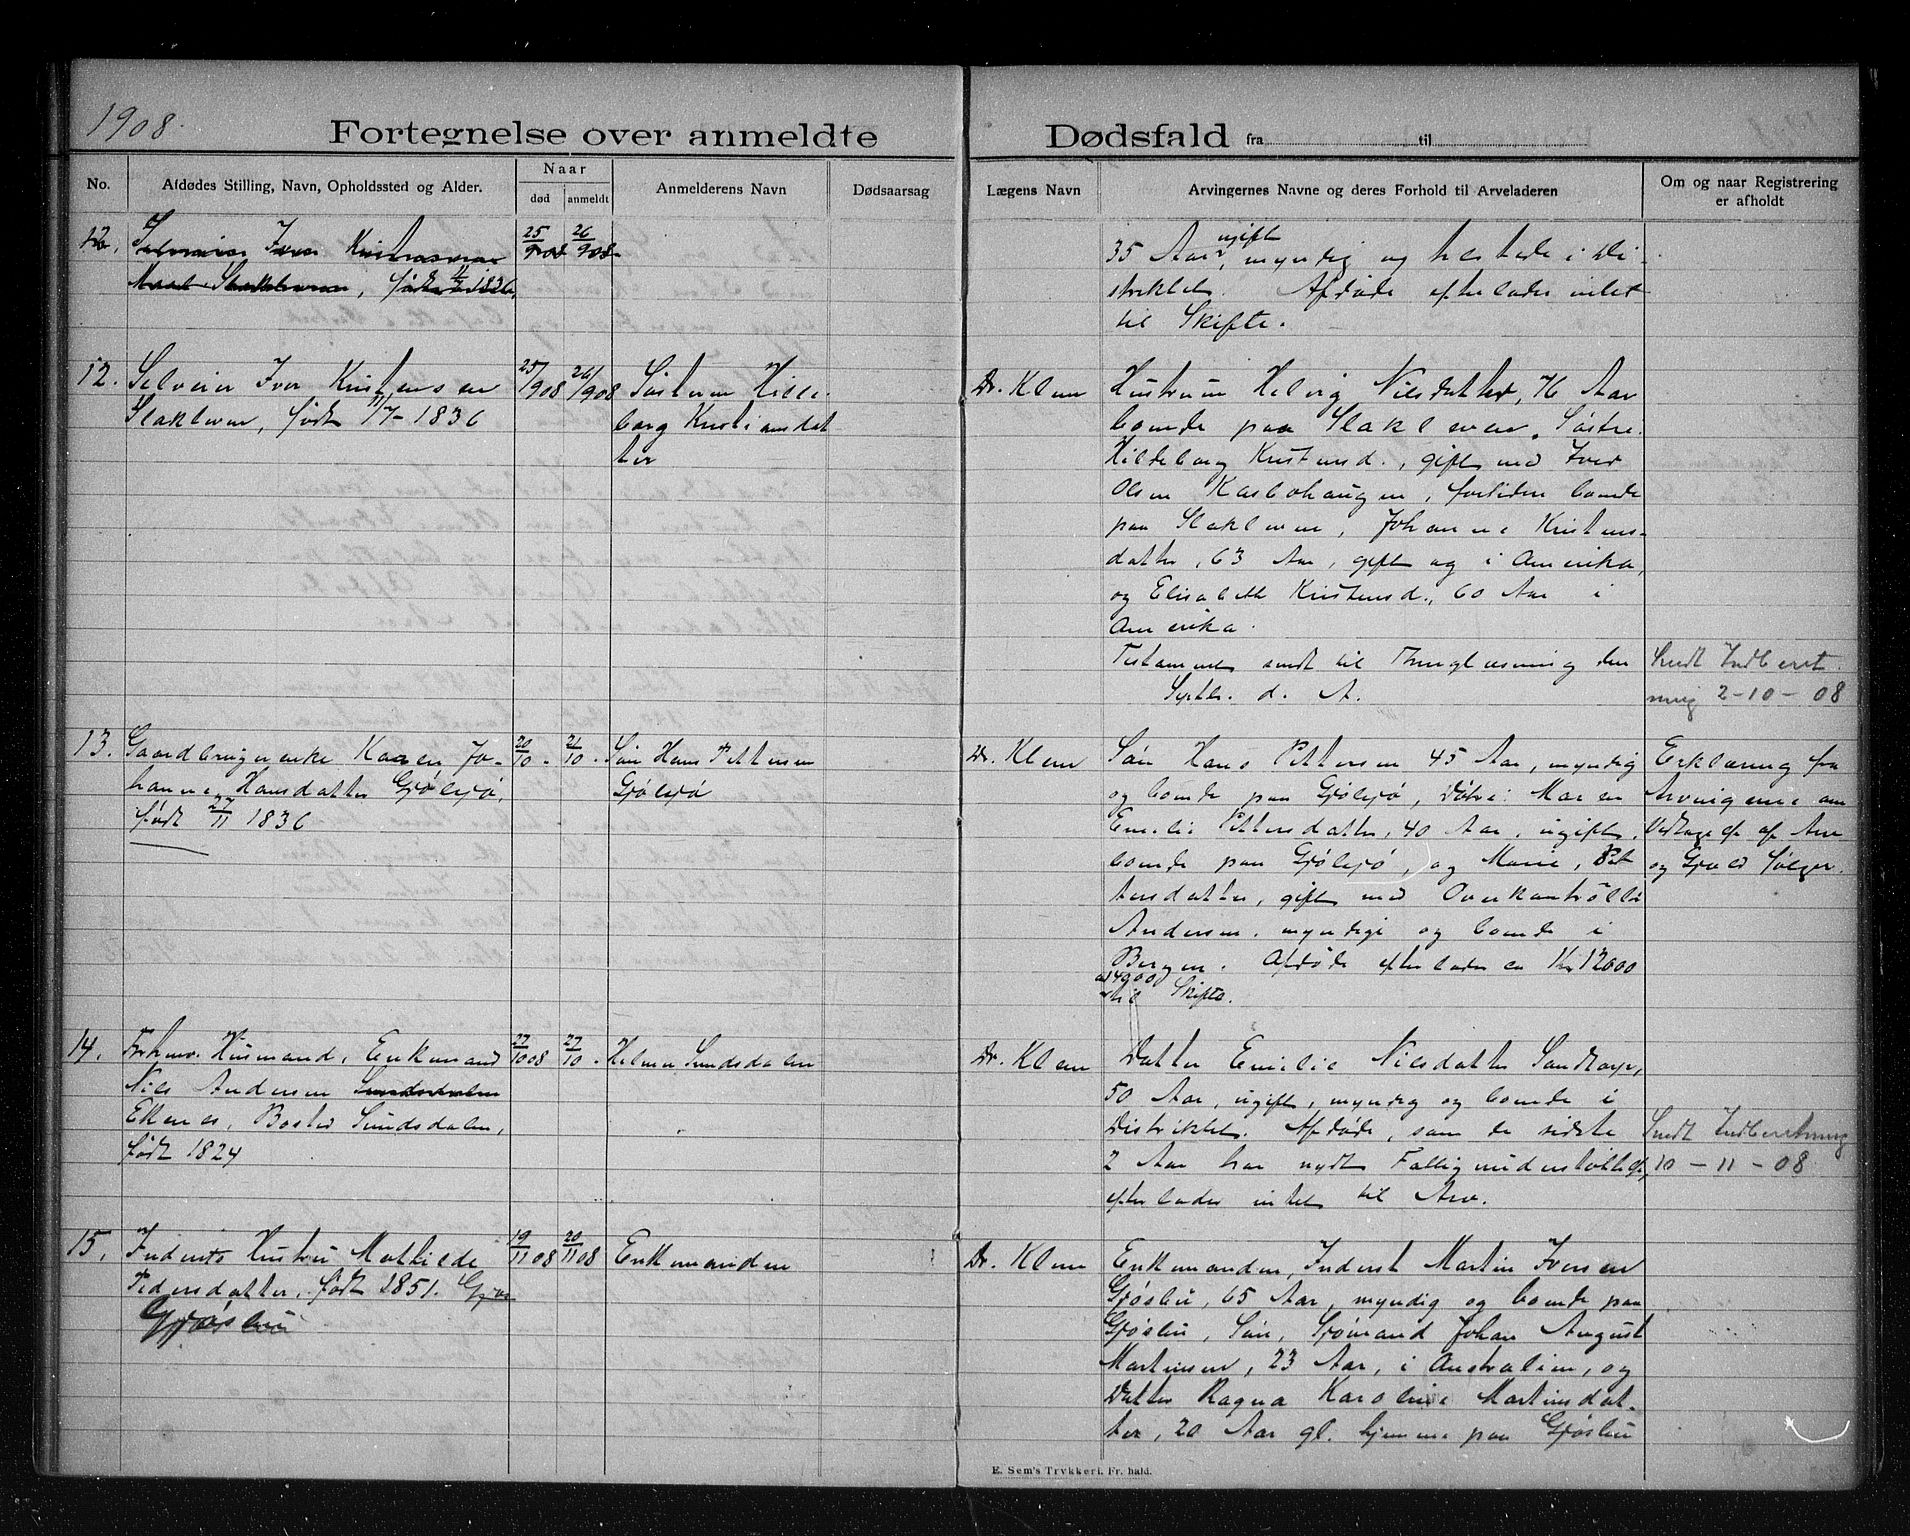 1908.
Fortegnelse over anmeldte Dødsfald fra til
No.
Afdødes Stilling, Navn, Opholdssted og Alder.
Naar
død
anmeldt
Anmelderens Navn
Dødsaarsag
Lægens Navn
Arvingernes Navne og deres Forhold til Arveladeren
Om og naar Registrering
er afholdt
12.
Selveier Iver Kristensen
Slakteren, født 11/7 1836,
25/9 08
26/9 08
35 Aar, ugift, myndig og tilstede i Di-
striktet. Afdøde efterlader intet
til Skifte.
12.
Selveier Iver Kristensen
Slakteren, født 11/7-1836
25/9 08
26/9 08
Søsteren Hille-
borg Kristiansdat
ter
Dr. Klem
Hustruen Helvig Nilsdatter, 76 Aar
boende paa Slakleren. Søstre:
Hildeborg Kristensd., gift med Iver
Olsen Kasbohaugen, fortiden boende
paa Slakleren, Johanne Kristens-
datter, 63 Aar, gift og i Amerika,
og Elisabeth Kristensd., 60 Aar i
Amerika.
Testamente sendt til Thinglæsning den
Septbr. d. A.
Sendt Indberet-
ning 2-10-08
13.
Gaardbrugerenke Karen Jo-
hanne Hansdatter Gjølsjø,
født 27/11 1836
20/10 -
21/10 -
Søn Hans Pettersen
Gjølsjø
Dr. Klem
Søn Hans Pettersen 45 Aar, myndig
og boende paa Gjølsjø, Døtre: Maren
Emilie Pettersdatter, 40 Aar, ugift,
boende paa Gjølsjø, og Marie Pet-
tersdatter, gift med Overkontrollør
Andersen, myndige og boende i
Bergen. Afdøde efterlader ca Kr 12000
à 14900
til Skifte.
Erklæring fra
Arvingerne om
Vedtagelse af Arv
og Gjæld følger.
14.
Forhenv. Husmand, Enkemand
Nils Andersen Sundsdalen
Ekenes, Bosted Sundsdalen,
født 1824
27/10 08
27/10 -
Helmer Sundsdalen
Dr. Klem
Datter Emilie Nilsdatter Sandtorp,
50 Aar, ugift, myndig og boende i
Distriktet. Afdøde, som de sidste
2 Aar har nydt Fattigunderstøttelse,
efterlader intet til Arv.
Sendt Indberetning
10-11-08
15.
Inderst's Hustru Mathilde
Pedersdatter, født 1851. Gjøs
Gjøslien
19/11 08
20/11 08
Enkemanden
Dr. Klem
Enkemanden, Inderst Martin Iversen
Gjøslien, 65 Aar, myndig og boende paa
Gjøslien, Søn, Sjømand Johan August
Martinsen, 23 Aar, i Australien, og
Datter Ragna Karoline Martinsdat-
ter, 20 Aar gl. hjemme paa Gjøslien
E. Sem's Trykkeri. Fr. hald.